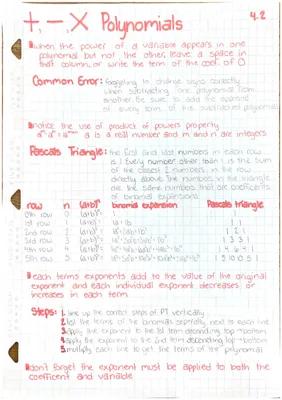 +, -, X Polynomials 4.2
when the power of a variable appears in one
polynomial but not the other, leave a space in
that column, or write the term of the coef. of 0
Common Error: forgetting to change signs correctly
when subtracting one polynomial from
another. Be sure to add the opposite
of every term of the subtracted polynomial
notice the use of product of powers property
a is a real number and m and n are integers
Pascals Triangle: the first and last numbers in each row
is 1. Every number other than 1 is the sum
of the closest 2 numbers in the row
directly above. The numbers in the triangle
are the same numbers that are coefficients
of binomial expansions.
row n (a+b)ⁿ binomial expansion Pascals Triangle
0th row 0 (a+b)⁰ 1 1
1st row 1 (a+b)¹ 1 1
2nd row 2 (a+b)² 1 2 1
3rd row 3 (a+b)³ 1 3 3 1
4th row 4 (a+b)⁴ 1 4 6 4 1
5th row 5 (a+b)⁵ 1 5 10 10 5 1
each terms exponents add to the value of the original
exponent and each individual exponent decreases or
increases in each term.
Steps: 1. line up the correct steps of PT vertically
2. list the terms of the binomials seperatly next to each line
3. apply the exponent to the 1st term descending top→bottom
4. apply the exponent to the 2nd term descending top→bottom
5. multiply each line to get the terms of the polynomial
don't forget the exponent must be applied to both the
coefficent and variable